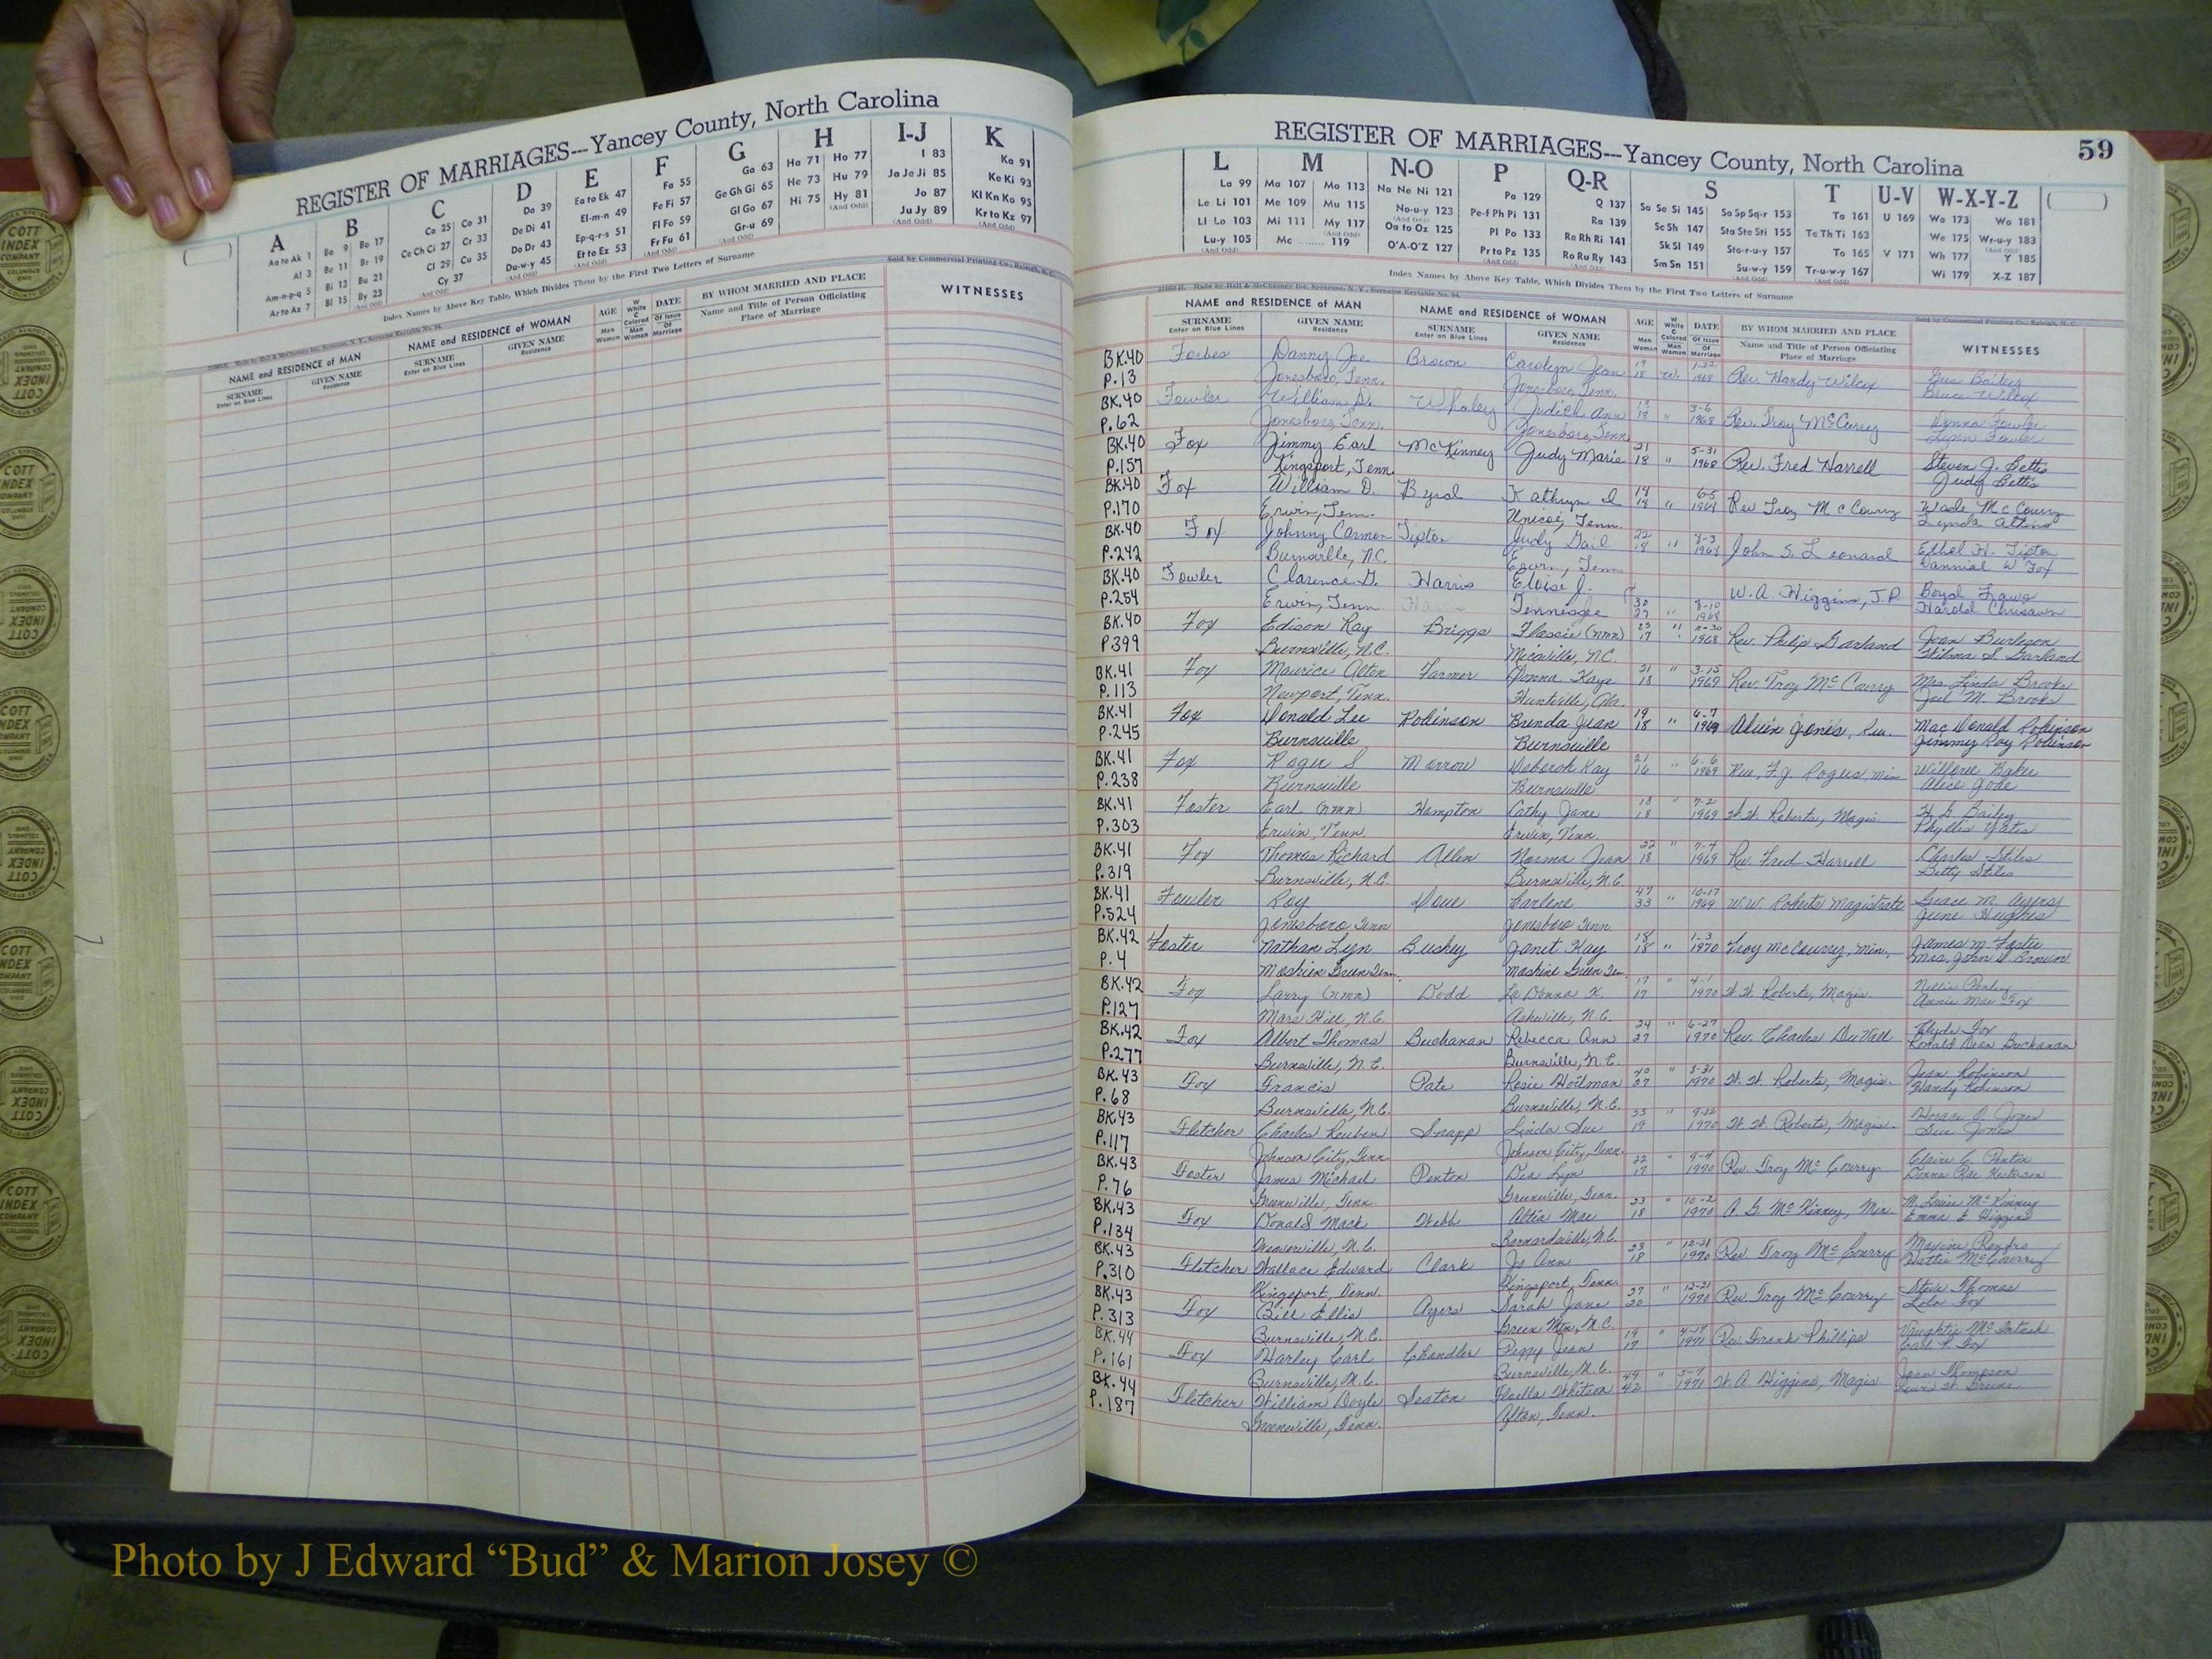 REGISTER OF MARRIAGES---Yancey County, North Carolina
A B C D E F G H I-J K
Aa to Ak 1 Ba 9 Bo 17 Ca 25 Co 31 Da 39 Ea to Ek 47 Fa 55 Ga 63 Ha 71 Ho 77 I 83 Ka 91
Al 3 Be 11 Br 19 Ce Ch Ci 27 Cr 33 De Di 41 El-m-n 49 Fe Fi 57 Ge Gh Gi 65 He 73 Hu 79 Ja Je Ji 85 Ke Ki 93
Am-n-p-q 5 Bi 13 Bu 21 Cl 29 Cu 35 Do Dr 43 Ep-q-r-s 51 Fl Fo 59 Gl Go 67 Hi 75 Hy 81 Jo 87 Kl Kn Ko 95
Ar to Az 7 Bl 15 By 23 Cy 37 Du-w-y 45 Et to Ez 53 Fr Fu 61 Gr-u 69 (And Odd) Ju Jy 89 Kr to Kz 97
Index Names by Above Key Table, Which Divides Them by the First Two Letters of Surname
Sold by Commercial Printing Co., Raleigh, N. C.
NAME and RESIDENCE of MAN NAME and RESIDENCE of WOMAN AGE W White C Colored DATE BY WHOM MARRIED AND PLACE WITNESSES
SURNAME GIVEN NAME SURNAME GIVEN NAME Man Woman Man Woman Of Issue Of Marriage Name and Title of Person Officiating
Enter on Blue Lines Residence Enter on Blue Lines Residence Place of Marriage
REGISTER OF MARRIAGES---Yancey County, North Carolina 59
L M N-O P Q-R S T U-V W-X-Y-Z
La 99 Ma 107 Mo 113 Na Ne Ni 121 Pa 129 Q 137 Sa Se Si 145 So Sp Sq-r 153 Ta 161 U 169 Wa 173 Wo 181
Le Li 101 Me 109 Mu 115 No-u-y 123 Pe-f Ph Pi 131 Ra 139 Sc Sh 147 Sta Ste Sti 155 Te Th Ti 163 We 175 Wr-u-y 183
Ll Lo 103 Mi 111 My 117 Oa to Oz 125 Pl Po 133 Re Rh Ri 141 Sk Sl 149 Sto-r-u-y 157 To 165 V 171 Wh 177 Y 185
Lu-y 105 Mc 119 O'A-O'Z 127 Pr to Pz 135 Ro Ru Ry 143 Sm Sn 151 Su-w-y 159 Tr-u-w-y 167 Wi 179 X-Z 187
Index Names by Above Key Table, Which Divides Them by the First Two Letters of Surname
NAME and RESIDENCE of MAN NAME and RESIDENCE of WOMAN AGE W White C Colored DATE BY WHOM MARRIED AND PLACE WITNESSES
SURNAME GIVEN NAME SURNAME GIVEN NAME Man Woman Man Woman Of Issue Of Marriage Name and Title of Person Officiating
Enter on Blue Lines Residence Enter on Blue Lines Residence Place of Marriage
BK.40 Forbes Danny Joe Brown Carolyn Jean 1-22 Rev. Hardy Wilcox
P.13 Jonesboro, Tenn. Jonesboro, Tenn. 18 W. 1968 Bruce Wilcox
BK.40 Fowler William D. Whaley Judith Ann 3-6 Rev. Troy McCurry Donna Fowler
P.62 Jonesboro, Tenn. Jonesboro, Tenn. 18 " 1968 Lynn Fowler
BK.40 Fox Jimmy Earl McKinney Judy Marie 21 5-31 Rev. Fred Harrell Steven J. Bettis
P.157 Kingsport, Tenn. 18 " 1968 Judy Bettis
BK.40 Fox William D. Byrd Kathryn 6-5 Rev Troy McCoury Wade McCoury
P.170 Erwin, Tenn. Unicoi, Tenn. " 1968 Lynda
BK.40 Fox Johnny Carmon Tipton Judy Gail 22 8-3 John S. Leonard Ethel H. Tipton
P.242 Burnsville, N.C. Erwin, Tenn 18 " 1968 Dannial W Fox
BK.40 Fowler Clarence G. Harris Eloise J. W.A. Higgins, J.P Boyd
P.254 Erwin, Tenn. Tennessee 30 27 " 8-10 1968 Harold
BK.40 Fox Edison Ray Briggs Flassie (nmn) 23 " 11-30 Rev. Philip Garland Joan Burleson
P.399 Burnsville, N.C. Micaville, N.C. 17 1968 Wilma S. Garland
BK.41 Fox Maurice Alton Farmer Donna Kaye 21 " 3-15 Rev. Troy McCurry Mrs. Linda Brooks
P.113 Newport, Tenn. Huntsville, Ala. 18 1969 Joel M. Brooks
BK.41 Fox Donald Lee Robinson Brenda Jean 19 6-7 Alvin Jones, Rev. Mac Donald Robinson
P.245 Burnsville Burnsville 18 " 1969 Jimmy Roy Robinson
BK.41 Fox Roger S Morrow Deborah Kay 21 6-6 Rev. F.J. Min
P.238 Burnsville Burnsville 16 " 1969 Alice
BK.41 Foster Earl (nmn) Hampton Cathy Jane 18 " 7-2 W.W. Roberts, Magis. Bailey
P.303 Erwin, Tenn. Erwin, Tenn. 18 1969 Phyllis Yates
BK.41 Fox Thomas Richard Allen Norma Jean 22 " 7-4 Rev. Fred Harrell Charles Stiles
P.319 Burnsville, N.C. Burnsville, N.C. 18 1969 Betty Stiles
BK.41 Fowler Roy Earlene 47 10-17 W.W. Roberts Magistrate Grace M. Ayers
P.524 Jonesboro Tenn Jonesboro Tenn. 33 " 1969 June Hughes
BK.42 Foster Nathan Lyn Janet Kay 18 1-3 Troy McCourry, Min. James M. Foster
P.4 18 " 1970 Mrs. John W. Brown
BK.42 Fox Larry (nmn) Dodd La Donna K. 17 " 4-1 W.W. Roberts, Magis. Nellie
P.127 Mars Hill, N.C. Asheville, N.C. 17 1970 Annie Mae Fox
BK.42 Fox Albert Thomas Buchanan Rebecca Ann 24 " 6-27 Rev. Charles DuVall Clyde Fox
P.277 Burnsville, N.C. Burnsville, N.C. 27 1970 Ronald Dean Buchanan
BK.43 Fox Francis Pate Rosie Hoilman 40 " 8-31 W.W. Roberts, Magis. Jean Robinson
P.68 Burnsville, N.C. Burnsville, N.C. 27 1970 Handy Robinson
BK.43 Fletcher Charles Reuben Snapp Linda Sue 23 " 9-22 W.W. Roberts, Magis. Horace O. Jones
P.117 Johnson City, Tenn. Johnson City, Tenn. 19 1970 Sue Jones
BK.43 Foster James Michael Penton Dea Lyn 22 " 9-4 Rev. Troy McCourry Claire C. Penton
P.76 Greeneville, Tenn. Greeneville, Tenn. 17 1970 Donna Rae
BK.43 Fox Donald Mack Webb Attie Mae 23 " 10-2 A.G. McKinney, Min. M. Louise McKinney
P.134 Weaverville, N.C. Barnardsville, N.C. 18 1970 Emma E. Higgins
BK.43 Fletcher Wallace Edward Clark Jo Ann 23 " 12-21 Rev Troy McCourry Maxine Renfro
P.310 Kingsport, Tenn. Kingsport, Tenn. 18 1970 Hattie McCourry
BK.43 Fox Bill Ellis Ayers Sarah Jane 37 " 12-21 Rev Troy McCourry Steve Thomas
P.313 Burnsville, N.C. Green Mtn., N.C. 20 1970 Lola Fox
BK.44 Fox Harley Carl Chandler Peggy Jean 19 " 4-17 Rev. Frank Phillips McIntosh
P.161 Burnsville, N.C. Burnsville, N.C. 17 1971 Carl P. Fox
BK.44 Fletcher William Doyle Seaton Whitson 49 " 5-7 W.A Higgins, Magis. Thompson
P.187 Greeneville, Tenn. Afton, Tenn. 42 1971
Photo by J Edward “Bud” & Marion Josey ©
COTT
INDEX
COMPANY
COLUMBUS
OHIO